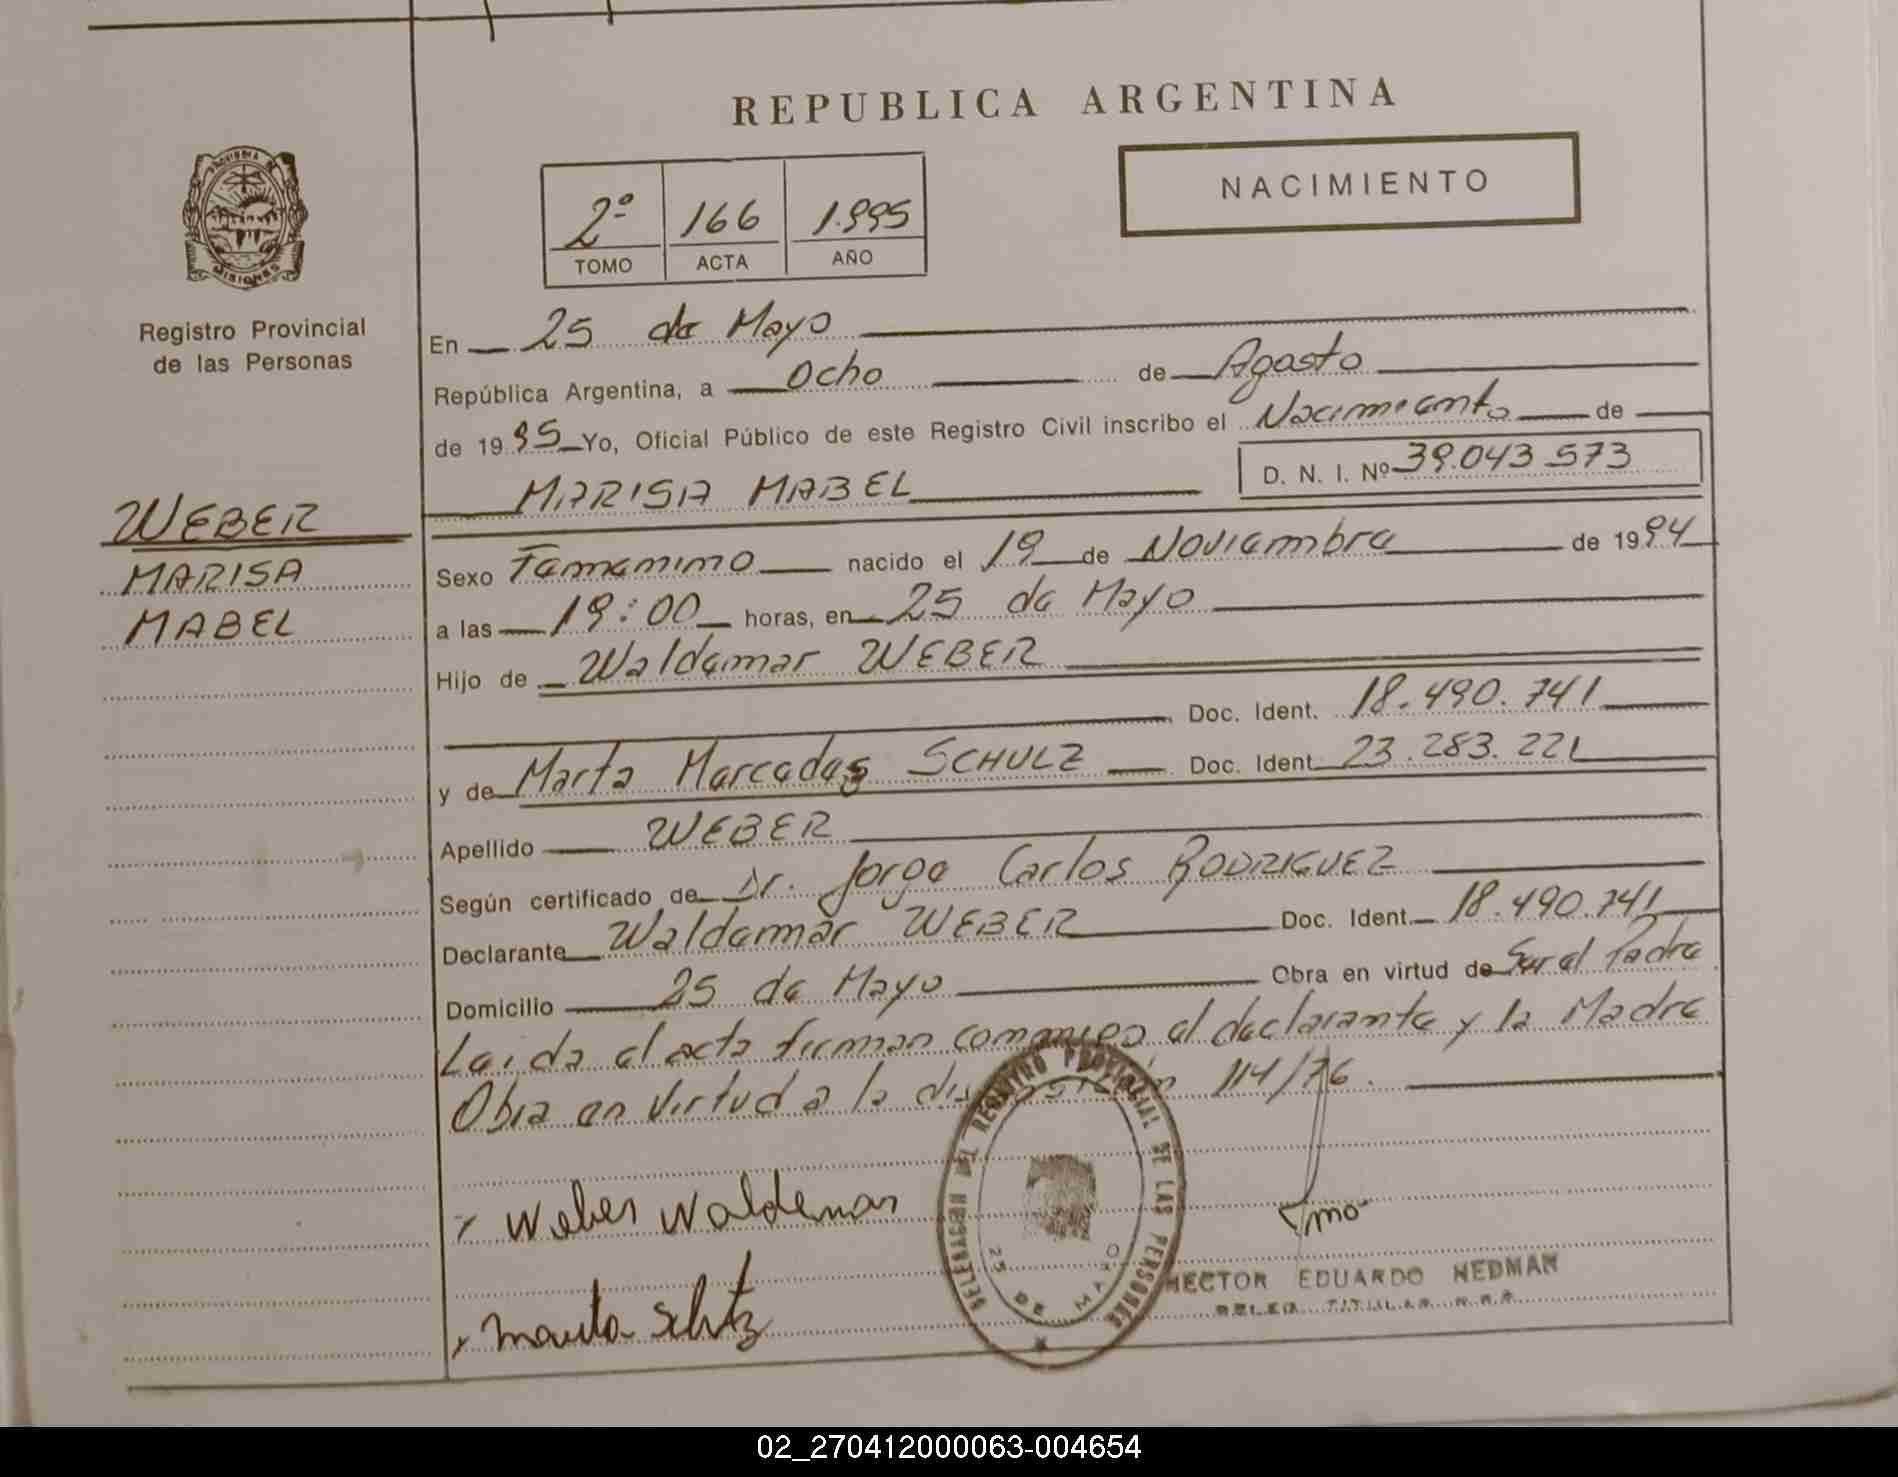 REPUBLICA ARGENTINA
NACIMIENTO
2º 166 1.995
TOMO ACTA AÑO
PROVINCIA DE
MISIONES
Registro Provincial
de las Personas
WEBER
MARISA
MABEL
En 25 de Mayo
República Argentina, a Ocho de Agosto
de 1995 Yo, Oficial Público de este Registro Civil inscribo el Nacimiento de
MARISA MABEL D. N. I. Nº 39.043.573
Sexo Femenino nacido el 19 de Noviembre de 1994
a las 19:00 horas, en 25 de Mayo
Hijo de Waldemar WEBER
Doc. Ident. 18.490.741
y de Marta Mercedes SCHULZ Doc. Ident. 23.283.221
Apellido WEBER
Según certificado de Dr. Jorge Carlos RODRIGUEZ
Declarante Waldemar WEBER Doc. Ident. 18.490.741
Domicilio 25 de Mayo Obra en virtud de Ser el Padre
Leida el acta firman conmigo el declarante y la Madre
Obra en virtud a la disposición 114/76.
Weber Waldemar
DEL REGISTRO PROVINCIAL DE LAS PERSONAS
25 DE MAYO
HECTOR EDUARDO HEDMAN
02_270412000063-004654